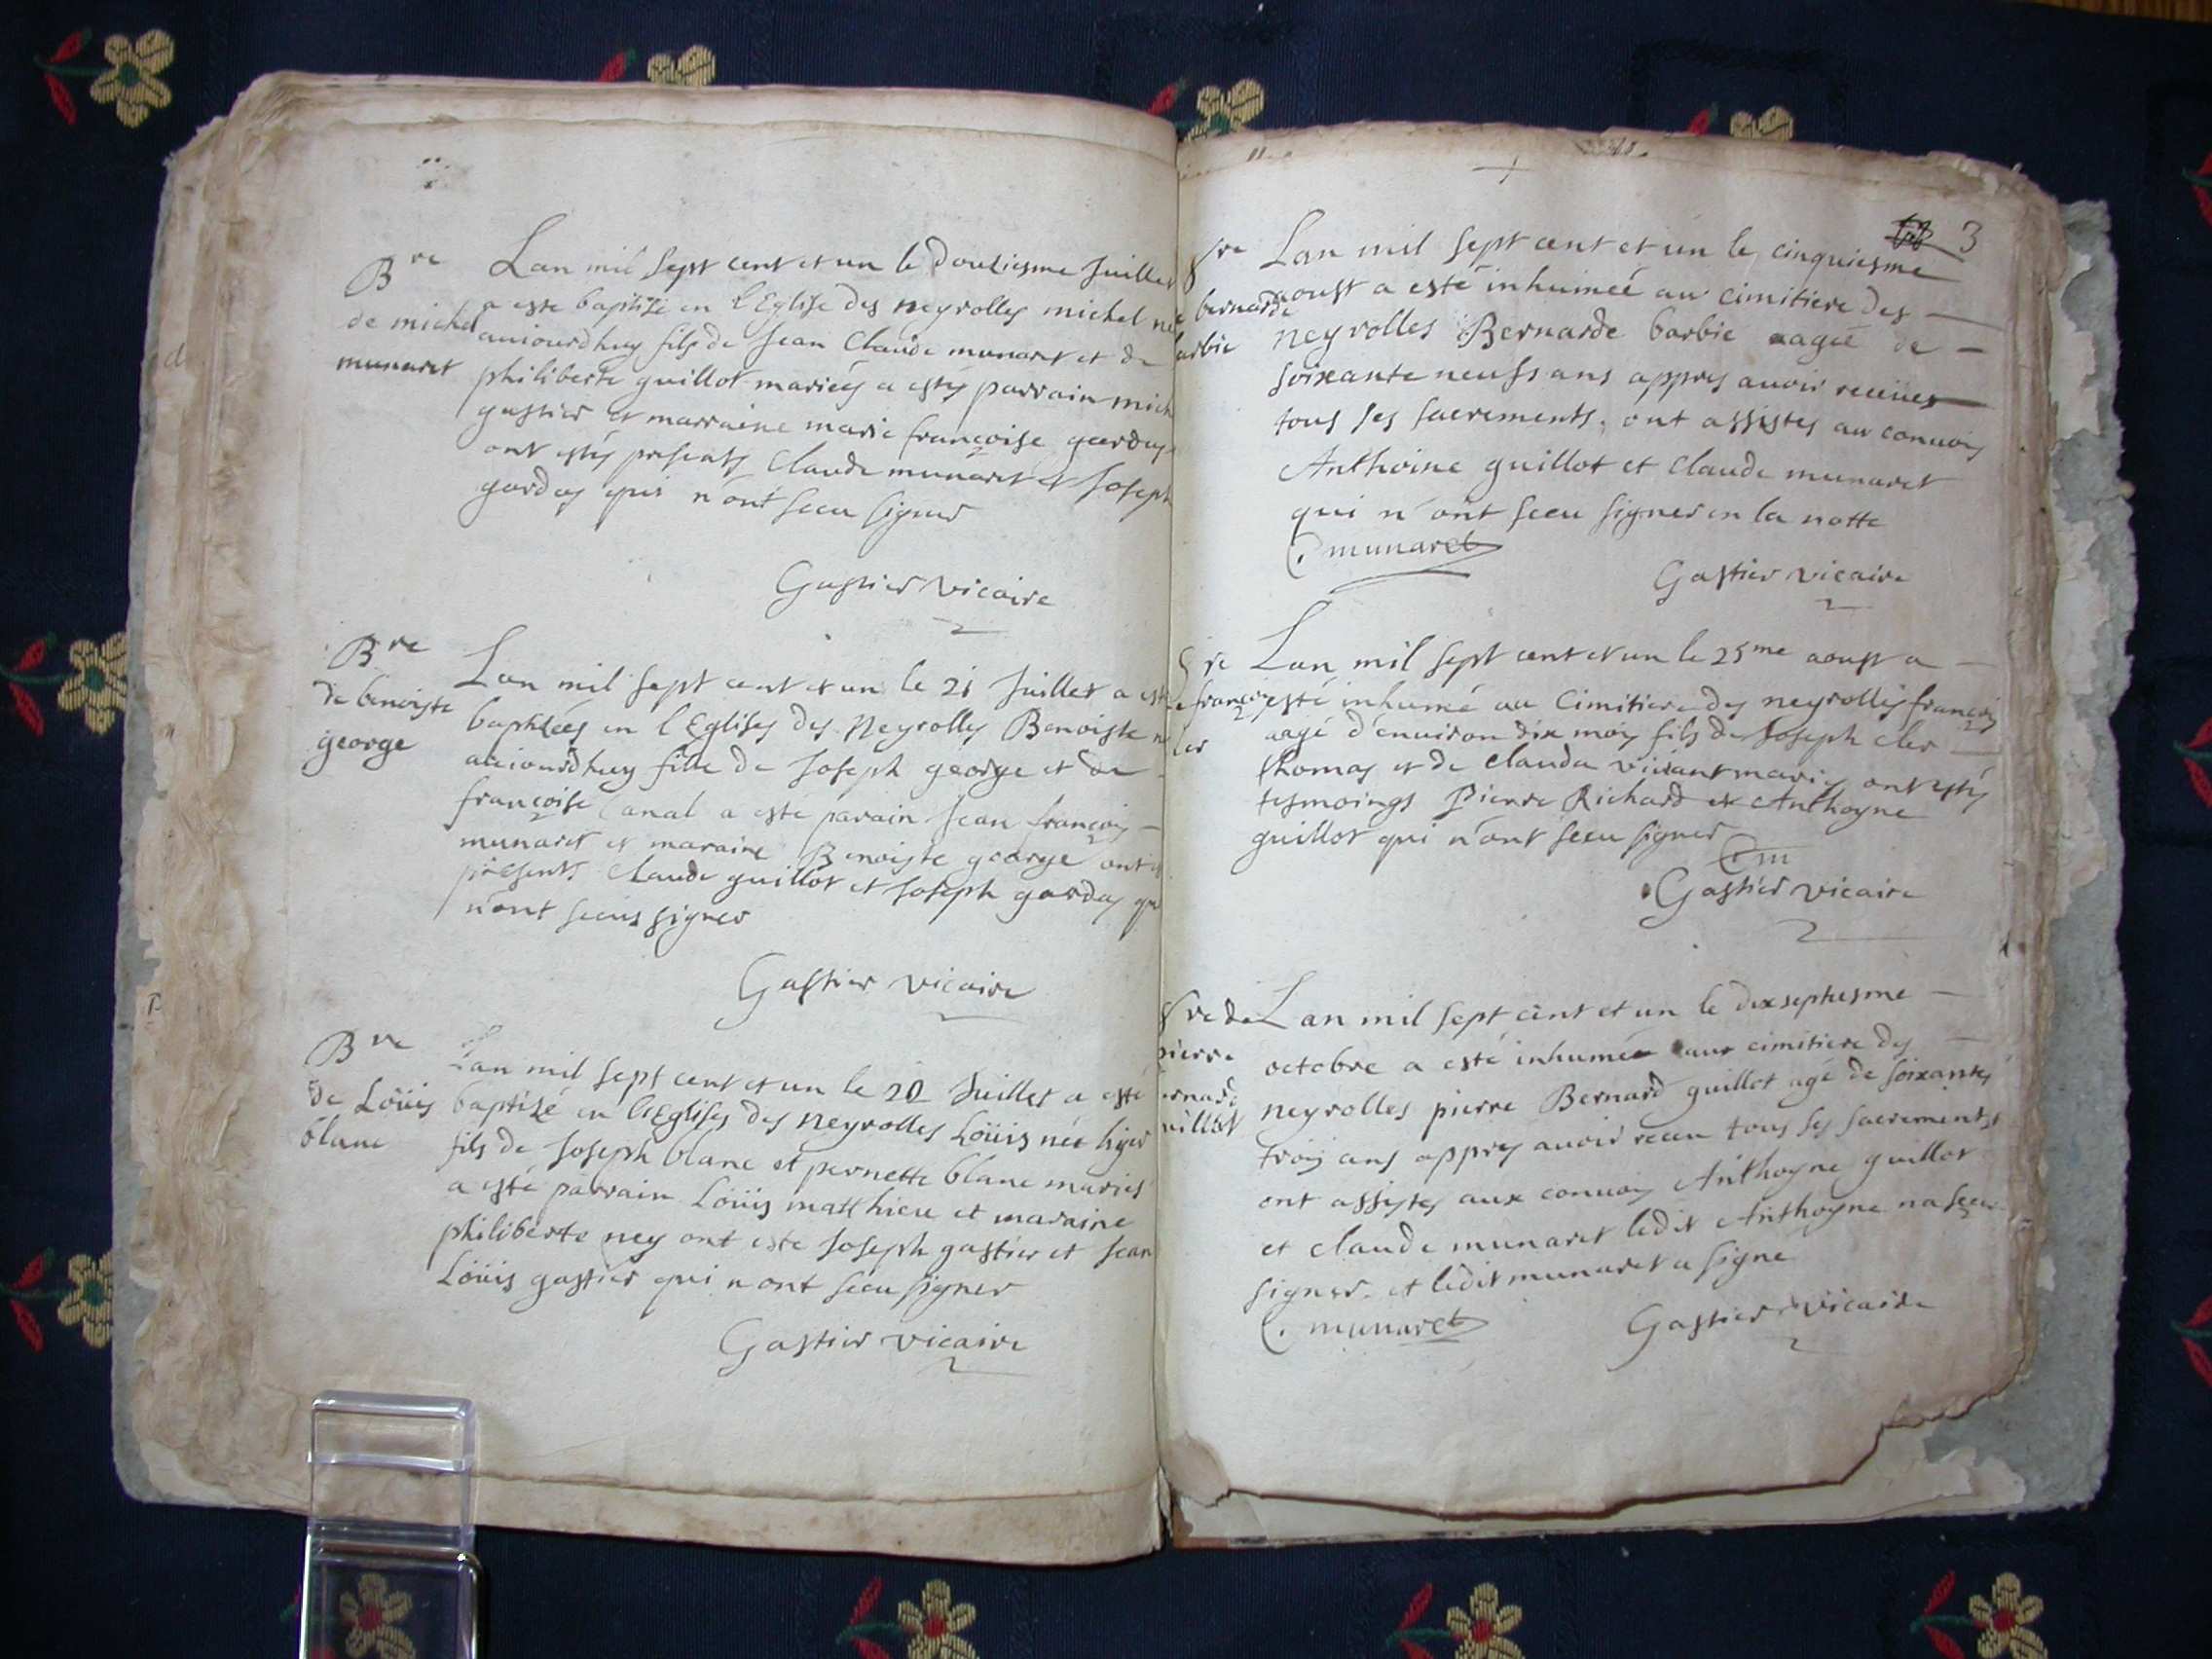 Bre
de michel
munaret
Lan mil sept cent et un le douziesme Juillet
a este baptizé en l'Eglise des neyrolles michel né
auiourdhuy fils de Jean Claude munaret et de
philiberte guillot mariéz a estéz parrain mich
gastier et marraine marie françoise gardas
ont estéz presents Claude munaret et Joseph
gardas qui n'ont sceu signer
Gastier vicaire
Bre
de benoiste
george
Lan mil sept cent et un le 21 Juillet a esté
baptizées en l'Eglises des Neyrolles Benoiste n
auiourdhuy fille de Joseph george et de
françoise Canal a esté parain Jean françois
munaret et maraine Benoiste george ont
présents Claude guillot et Joseph gardas qu
n'ont sceus signer
Gastier vicaire
Bre
de Loüis
blanc
Lan mil sept cent et un le 20 Juillet a esté
baptizé en l'Eglises des neyrolles Loüis née hyer
fils de Joseph blanc et pernette blanc mariés
a esté parrain Loüis matthieu et maraine
philiberte ney ont este Joseph gastier et Jean
Loüis gastier qui n'ont sceu signer
Gastier vicaire
3
Sre
e bernarde
arbie
Lan mil sept cent et un le cinquiesme
aoust a esté inhumeé au cimitiere des
neyrolles Bernarde barbie aagée de
soixante neufs ans appres auoir receües
tous ses sacrements, ont assistes au conuoy
Anthoine guillot et claude munaret
qui n'ont sceu signer en la notte
C. munaret
Gastier vicaire
Sre
e françois
ler
Lan mil sept cent et un le 25me aoust a
esté inhumé au Cimitiere des neyrolles françois
aagé d'enuiron dix mois fils de Joseph cler
thomas et de clauda viuant mariés ont estés
tesmoings Pierre Richard et Anthoyne
guillot qui n'ont sceu signer
C m
Gastier vicaire
Sre de
pierre
ernard
uillot
Lan mil sept cent et un le dixseptiesme
octobre a esté inhumée aux cimitiere des
neyrolles pierre Bernard guillot agé de soixantes
trois ans appres auoir receu tous ses sacrements
ont assistes aux conuoy Anthoyne guillot
et claude munaret ledit Anthoyne na sceu
signer et ledit munaret a signe
C. munaret
Gastier vicaire